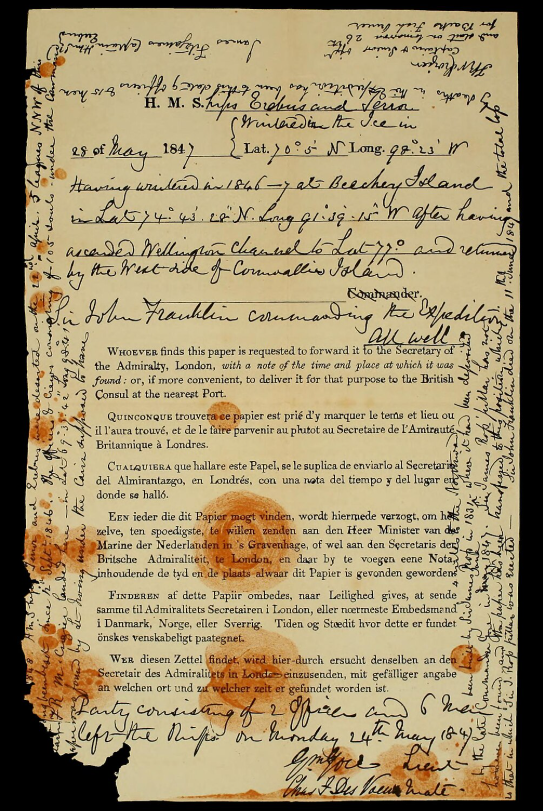 H. M. S. hips Erebus and Terror
Wintered in the Ice in
28 of May 1847 Lat. 70° 5' N Long. 98° 23' W
Having wintered in 1846–7 at Beechey Island
in Lat 74° 43' 28" N. Long 91° 39' 15" W After having
ascended Wellington Channel to Lat 77° and returned
by the West side of Cornwallis Island.
Commander.
Sir John Franklin commanding the Expedition
All well
WHOEVER finds this paper is requested to forward it to the Secretary of
the Admiralty, London, with a note of the time and place at which it was
found: or, if more convenient, to deliver it for that purpose to the British
Consul at the nearest Port.
QUINCONQUE trouvera ce papier est prié d'y marquer le tems et lieu ou
il l'aura trouvé, et de le faire parvenir au plutot au Secretaire de l'Amirauté
Britannique à Londres.
CUALQUIERA que hallare este Papel, se le suplica de enviarlo al Secretario
del Almirantazgo, en Londrés, con una nota del tiempo y del lugar en
donde se halló.
EEN ieder die dit Papier mogt vinden, wordt hiermede verzogt, om het
zelve, ten spoedigste, te willen zenden aan den Heer Minister van de
Marine der Nederlanden in 's Gravenhage, of wel aan den Secretaris der
Britsche Admiraliteit, te London, en daar by te voegen eene Nota,
inhoudende de tyd en de plaats alwaar dit Papier is gevonden geworden
FINDEREN af dette Papiir ombedes, naar Leilighed gives, at sende
samme til Admiralitets Secretairen i London, eller nœrmeste Embedsmand
i Danmark, Norge, eller Sverrig. Tiden og Stœdit hvor dette er fundet
önskes venskabeligt paategnet.
WER diesen Zettel findet, wird hier-durch ersucht denselben an den
Secretair des Admiralitets in London einzusenden, mit gefälliger angabe
an welchen ort und zu welcher zeit er gefundet worden ist.
Party consisting of 2 Officers and 6 Men
left the Ships on Monday 24th May 1847
Gm Gore Lieut
Chas F Des Voeux Mate
H.M. Ships Terror and Erebus were deserted on the 22nd April 5 leagues NNW of this
1848
The Officers & Crews consisting of 105 souls under the Command
Captain F.R.M. Crozier landed here in Lat 69° 37' 42" Long 98° 41'
This paper was found by Lt Irving under the Cairn supposed to have
been built by Sir James Ross in 1831 4 miles to the Northward
where it had been deposited
by the late Commander Gore in June 1847.
Sir James Ross' pillar has not
however been found and the paper has been transferred to this position which
is that in which Sir J. Ross' pillar was erected
Sir John Franklin died on the 11 June 1847 and the total loss
by deaths in the Expedition has been to this date 9 Officers & 15 men
James Fitzjames Captain HMS
Erebus
FRM Crozier
Captain & Senior Offr
and start on tomorrow 26
for Backs Fish River